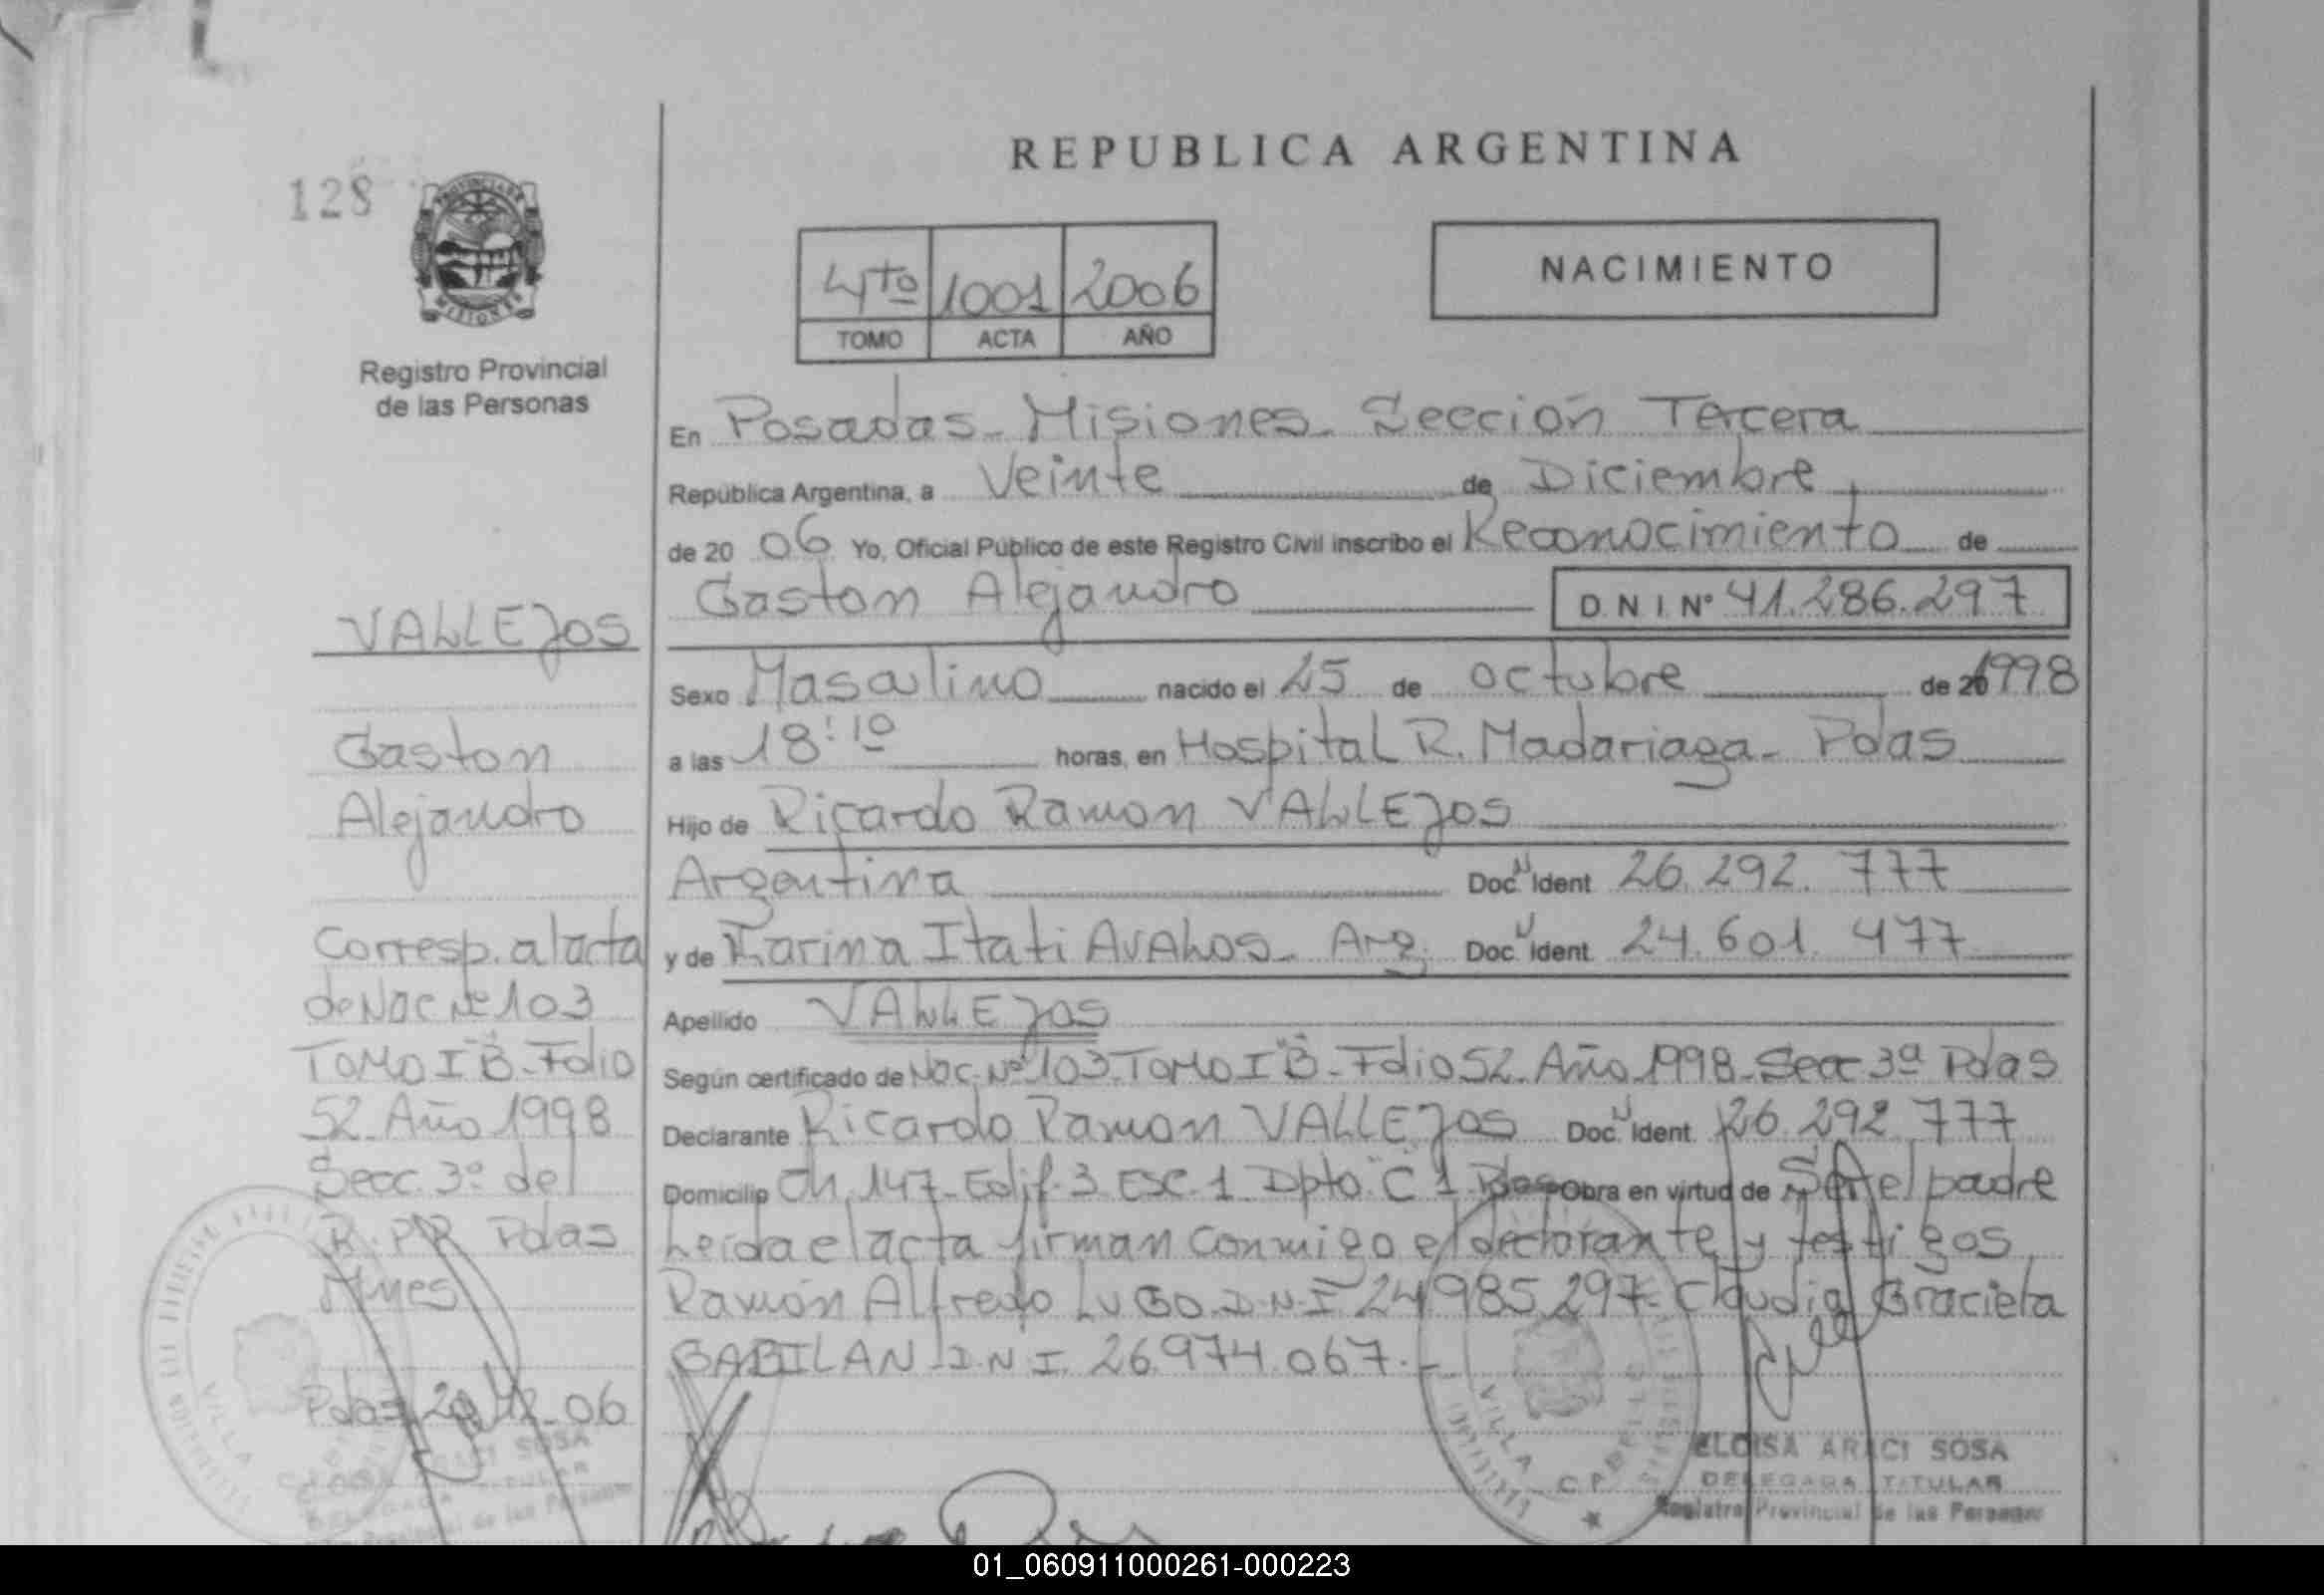 REPUBLICA ARGENTINA
128
4to 1001 2006
TOMO ACTA AÑO
NACIMIENTO
Registro Provincial
de las Personas
En Posadas - Misiones - Sección Tercera
República Argentina, a Veinte de Diciembre
de 20 06 Yo, Oficial Público de este Registro Civil inscribo el Reconocimiento de
Gaston Alejandro D.N.I. Nº 41.286.297
Sexo Masculino nacido el 25 de octubre de 1998
a las 18:10 horas, en Hospital R. Madariaga - Pdas
Hijo de Ricardo Ramon VALLEJOS
Argentina Doc. Ident 26.292.777
y de Karina Itati AVALOS - Arg. Doc. Ident 24.601.477
Apellido VALLEJOS
Según certificado de Nac. Nº 103 Tomo I "B" - Folio 52 - Año 1998 - Secc 3ª Pdas
Declarante Ricardo Ramon VALLEJOS Doc. Ident. 26.292.777
Domicilio Ch. 147 - Edif. 3 Esc. 1 Dpto "C" 1 Obra en virtud de Ser el padre
Leida el acta firman conmigo el declarante y testigos
Ramón Alfredo LUGO D.N.I 24.985.297 - Claudia Graciela
BABILAN D.N.I. 26.974.067.-
VALLEJOS
Gaston
Alejandro
Corresp. al acta
de Nac Nº 103
TOMO I "B" - Folio
52 - Año 1998
Secc. 3º del
R.P.P. Pdas
Mnes
Pdas, 20-12-06
VILLA CABELLO
ELOISA ARACI SOSA
DELEGADA TITULAR
Registro Provincial de las Personas
ELOISA ARACI SOSA
DELEGADA TITULAR
Provincial de las Personas
01_060911000261-000223